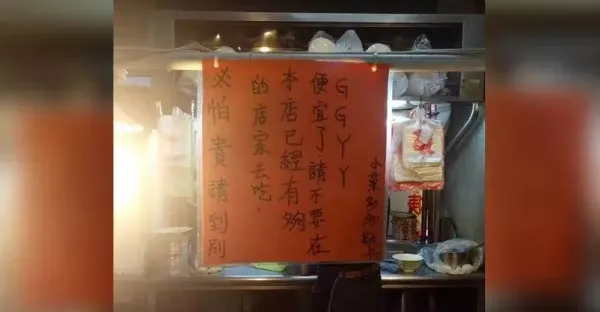 必怕貴請到別
的店家去吃.
本店已經有夠
便宜了請不要在
GGYY
小菜
東